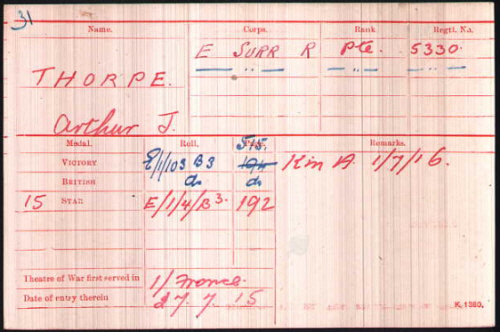 31
Name. Corps. Rank Regtl. No.
E SURR R Pte. 5330.
" " " "
THORPE.
Arthur J.
Medal. Roll. Page. Remarks.
515.
VICTORY E/1/103 B3 Kin A 1/7/16.
BRITISH do do
15 STAR E/1/4/B3. 192
Theatre of War first served in 1/ France.
Date of entry therein 27.7.15
K.1380.